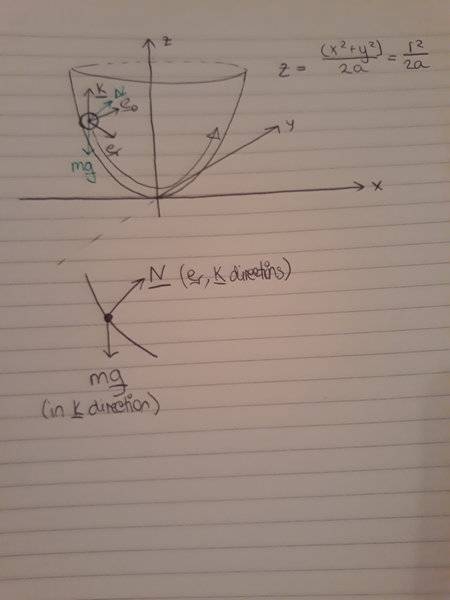 z
z = (x²+y²)/2a = r²/2a
k N
eθ
er
mg
y
x
N (er, k directions)
mg
(in k direction)